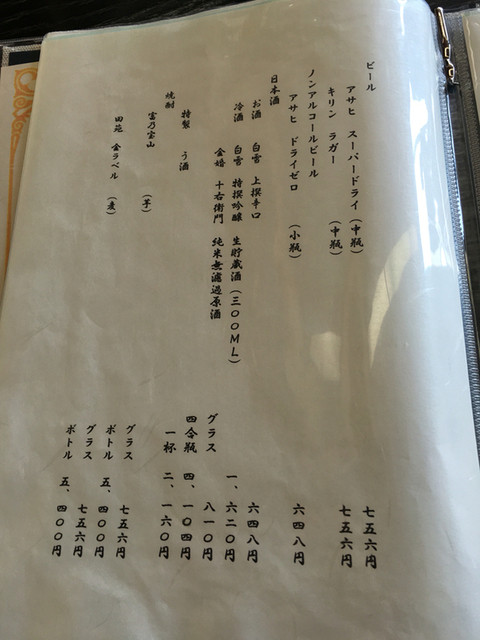 ビール
アサヒ スーパードライ(中瓶) 七五六円
キリン ラガー (中瓶) 七五六円
ノンアルコールビール
アサヒ ドライゼロ (小瓶) 六四八円
日本酒
お酒 白雪 上撰辛口 六四八円
冷酒 白雪 特撰吟醸 生貯蔵酒(三〇〇ML) 一、六二〇円
金婚 十右衛門 純米無濾過原酒 グラス 八一〇円
四合瓶 四、一〇四円
特製 う酒 一杯 二、一六〇円
焼酎
宝乃宝山 (芋) グラス 七五六円
ボトル 五、四〇〇円
田苑 金ラベル (麦) グラス 七五六円
ボトル 五、四〇〇円